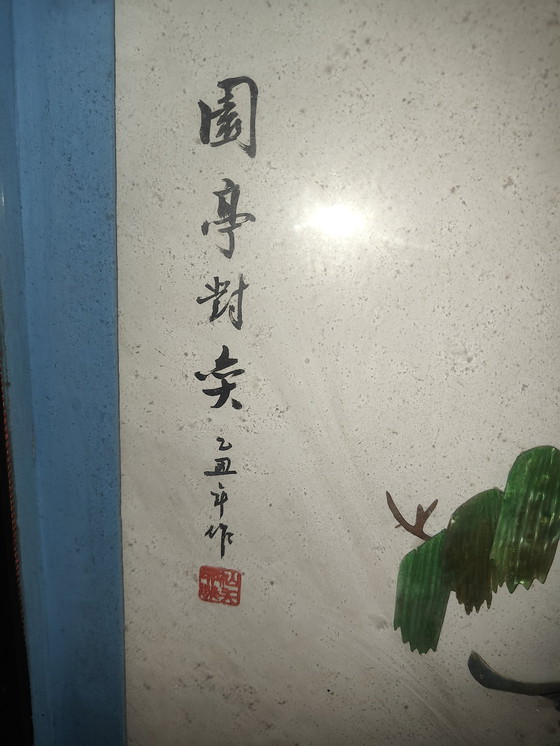 園亭對奕
乙丑年作